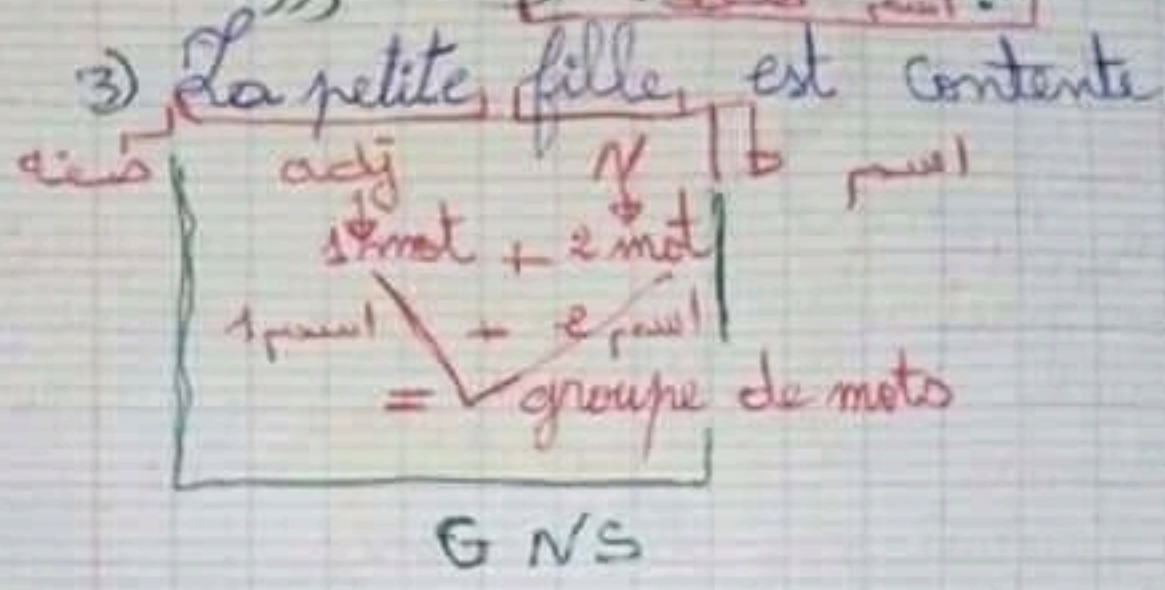 3) La petite fille est contente
adj N اسم
1 mot + 2 mot
1 اسم + 2 اسم
= groupe de mots
G N S